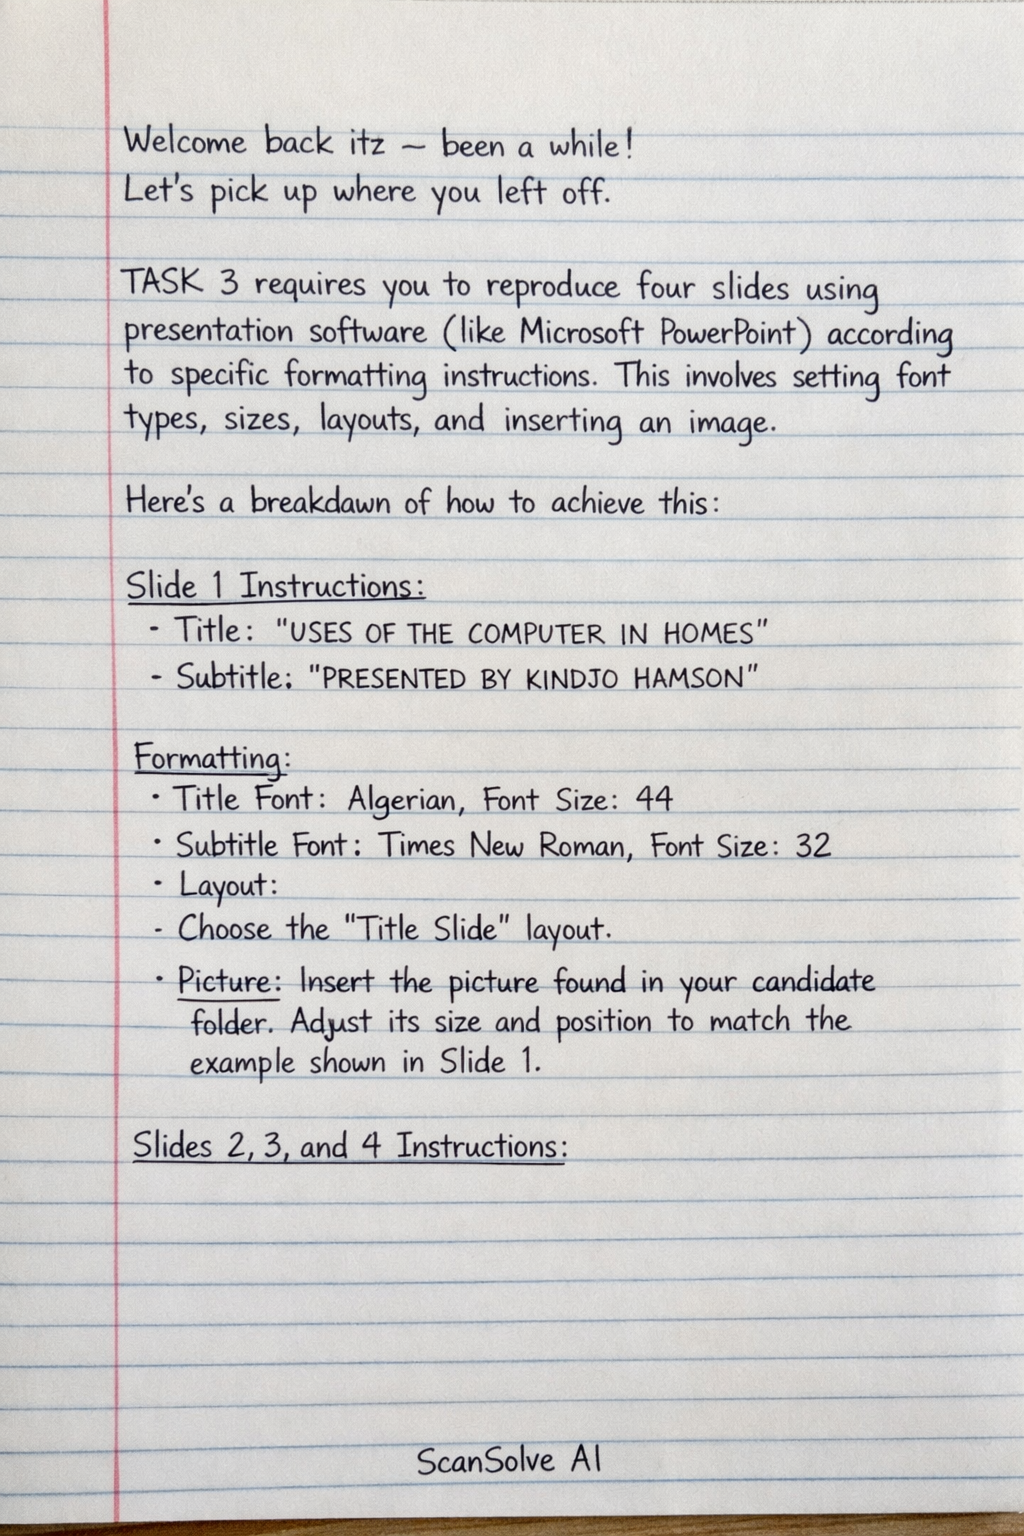 Welcome back itz – been a while!
Let's pick up where you left off.
TASK 3 requires you to reproduce four slides using
presentation software (like Microsoft PowerPoint) according
to specific formatting instructions. This involves setting font
types, sizes, layouts, and inserting an image.
Here's a breakdawn of how to achieve this:
Slide 1 Instructions:
- Title: "USES OF THE COMPUTER IN HOMES"
- Subtitle: "PRESENTED BY KINDJO HAMSON"
Formatting:
· Title Font: Algerian, Font Size: 44
· Subtitle Font: Times New Roman, Font Size: 32
· Layout:
- Choose the "Title Slide" layout.
· Picture: Insert the picture found in your candidate
folder. Adjust its size and position to match the
example shown in Slide 1.
Slides 2, 3, and 4 Instructions:
ScanSolve AI